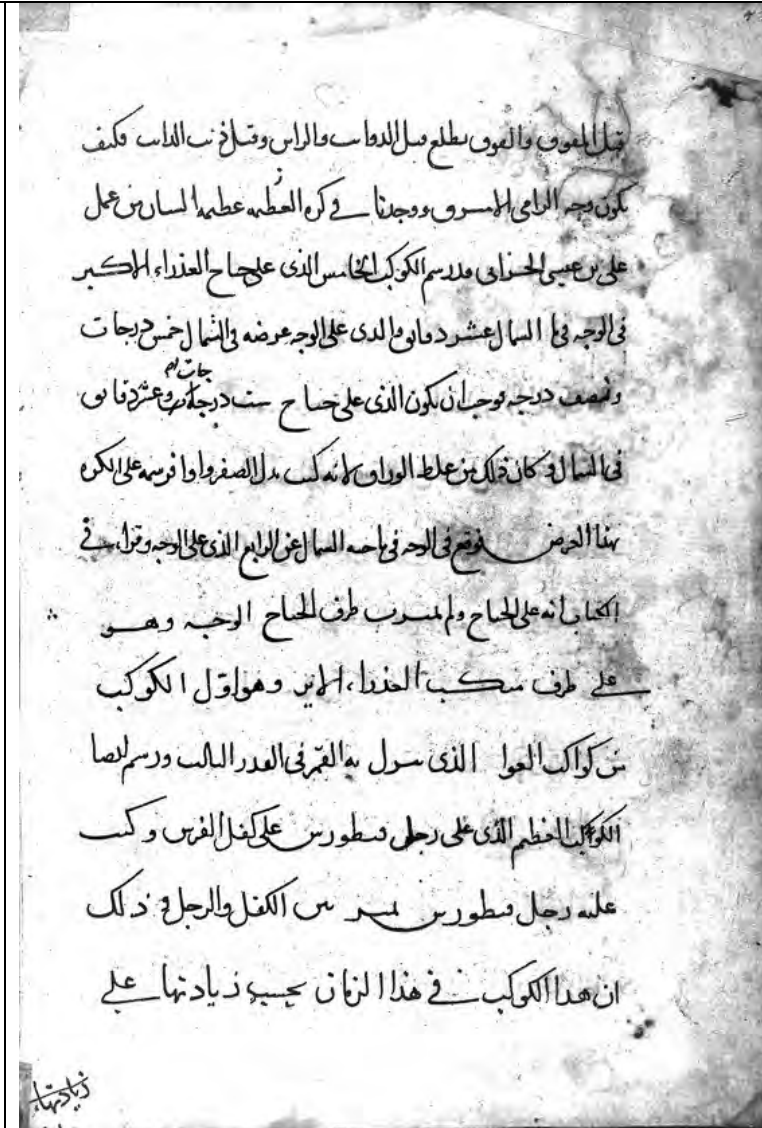 قبل الفوق والفوق يطلع قبل الذوائب والراس وقبل ذنب الدابة فكيف
يكون وجه الرامي الى المشرق ووجدنا في كرة عظيمة عظيمة الشان من عمل
علي بن عيسى الحراني قد رسم الكوكب الخامس الذي على جناح العذراء الايسر
في الوجه الشمال عشر دقايق والذي على الوجه عرضه في الشمال خمس درجات
ونصف درجة توجب ان يكون الذي على جناح ست درجات وعشر دقايق
جات
في الشمال وكان ذلك من غلط الوراق لانه كتب بدل الصفر واوا فرسمه على الكره
بهذا العرض فوقع في الوجه في ناحية الشمال عن الرابع الذي على الوجه وقرا في
الكتاب انه على الجناح ولم يميز بين طرف الجناح الوجه وهو
على طرف منكب العذراء الايسر وهو اول الكوكب
من كواكب العوا الذي ينزل به القمر في القدر الثالث ورسم ايضا
الكوكب العظيم الذي على رجل قنطورس على كفل الفرس وكتب
عليه رجل قنطورس ولم يميز بين الكفل والرجل وذلك
ان هذا الكوكب في هذا الزمان بحسب زيادتها على
زيادتها